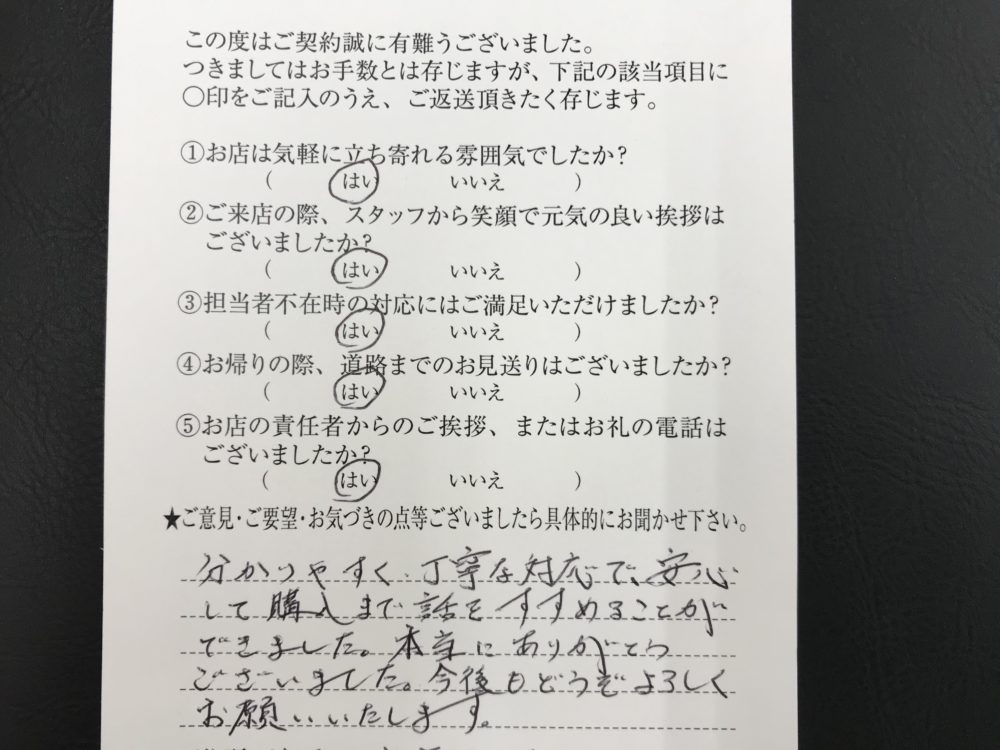 この度はご契約誠に有難うございました。
つきましてはお手数とは存じますが、下記の該当項目に
〇印をご記入のうえ、ご返送頂きたく存じます。
①お店は気軽に立ち寄れる雰囲気でしたか？
（　はい　いいえ　）
②ご来店の際、スタッフから笑顔で元気の良い挨拶は
ございましたか？
（　はい　いいえ　）
③担当者不在時の対応にはご満足いただけましたか？
（　はい　いいえ　）
④お帰りの際、道路までのお見送りはございましたか？
（　はい　いいえ　）
⑤お店の責任者からのご挨拶、またはお礼の電話は
ございましたか？
（　はい　いいえ　）
★ご意見・ご要望・お気づきの点等ございましたら具体的にお聞かせ下さい。
分かりやすく、丁寧な対応で、安心
して購入まで話をすすめることが
できました。本当にありがとう
ございました。今後もどうぞよろしく
お願いいたします。